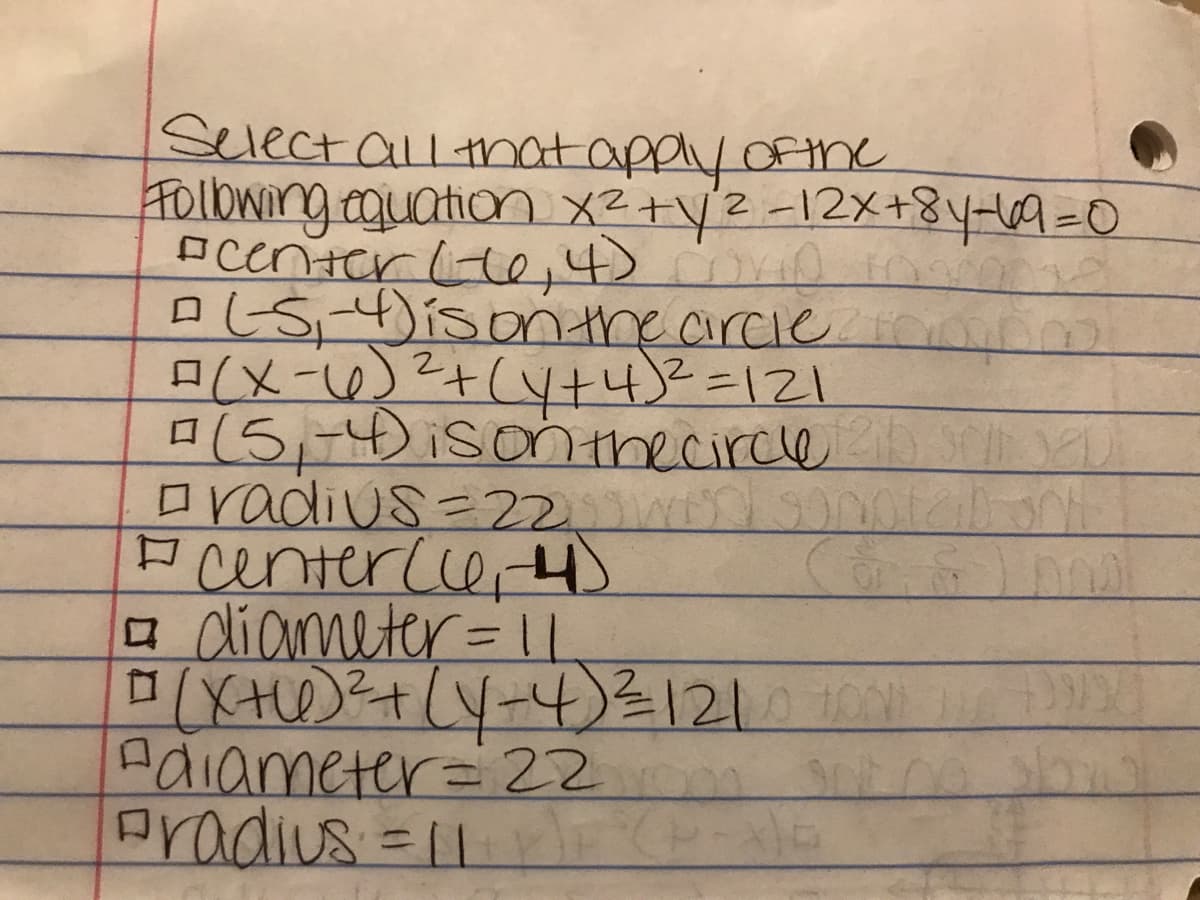 Select all that apply of the
Following equation x²+y²-12x+8y-69=0
□ center (-6,4)
□ (-5,-4) is on the circle
□ (x-6)²+(y+4)²=121
□ (5,-4) is on the circle
□ radius=22
□ center(6,-4)
□ diameter=11
□ (x+6)²+(y-4)²=121
□ diameter=22
□ radius=11